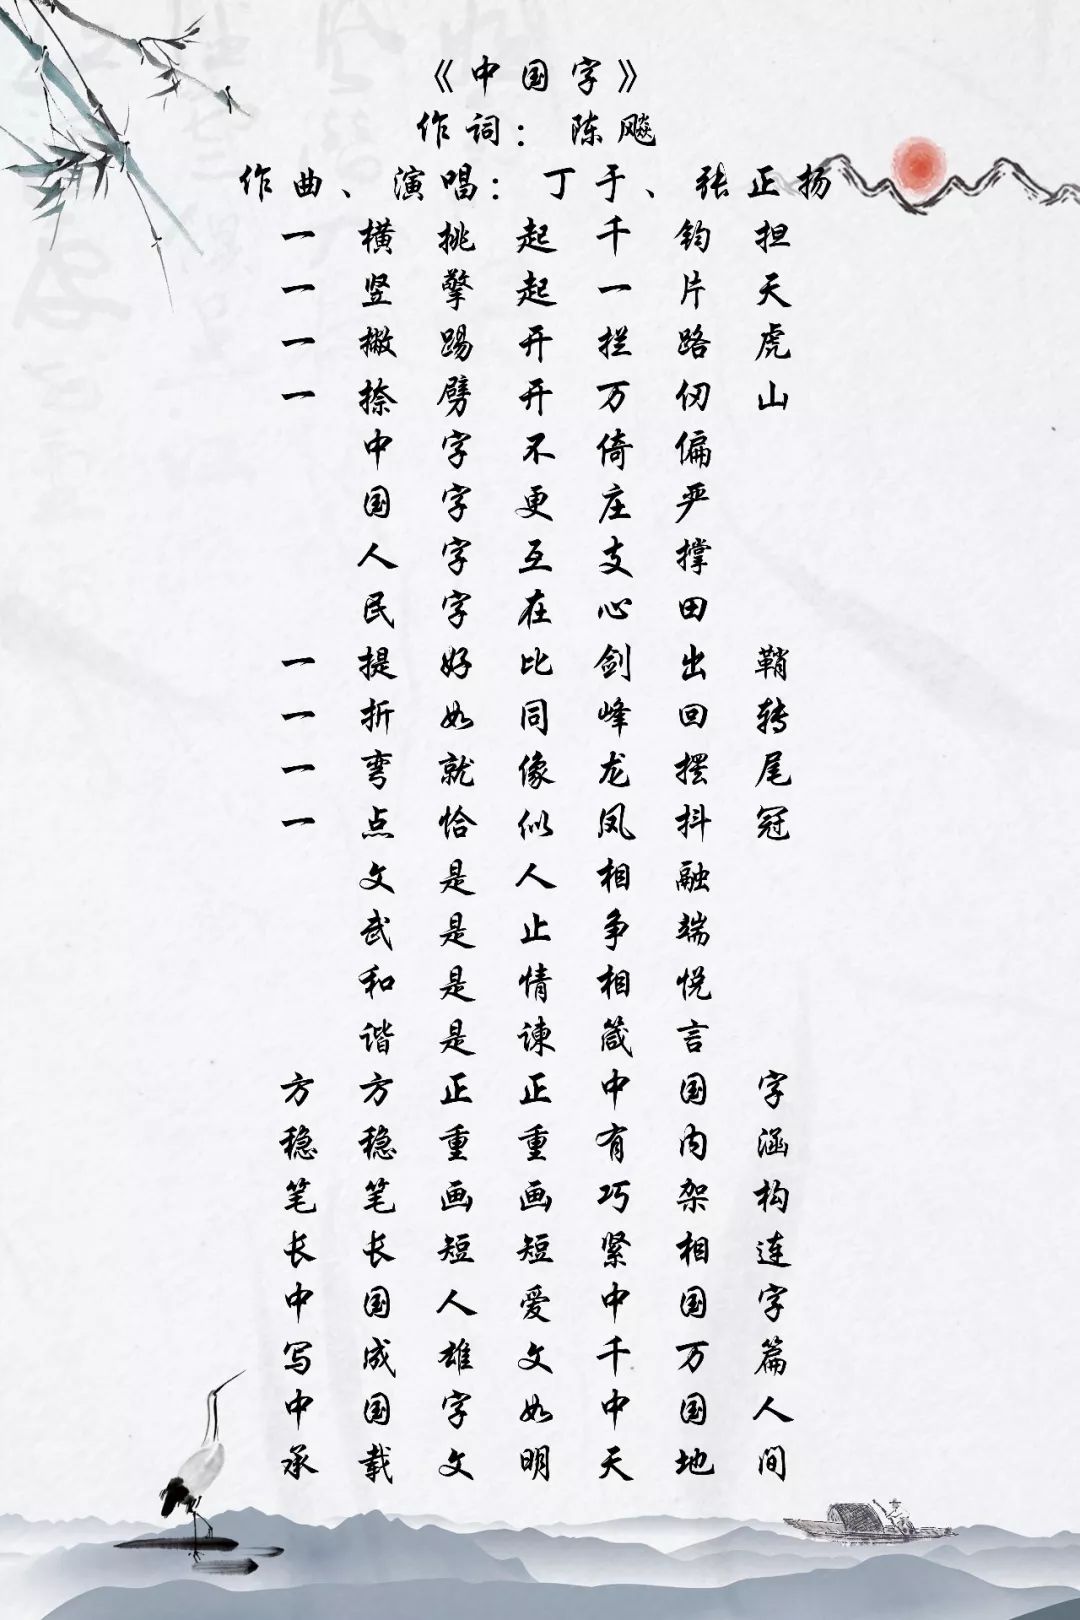 《中国字》
作词：陈飚
作曲、演唱：丁于、张正扬
一横挑起千钧担
一竖擎起一片天
一撇踢开拦路虎
一捺劈开万仞山
中字不倚偏
国字更庄严
人字互支撑
民字在心田
一提好比剑出鞘
一折如同峰回转
一弯就像龙摆尾
一点恰似凤抖冠
文是人相融
武是止争端
和是情相悦
谐是谏箴言
方方正正中国字
稳稳重重有内涵
笔笔画画巧架构
长长短短紧相连
中国人爱中国字
写成雄文千万篇
中国字如中国人
承载文明天地间